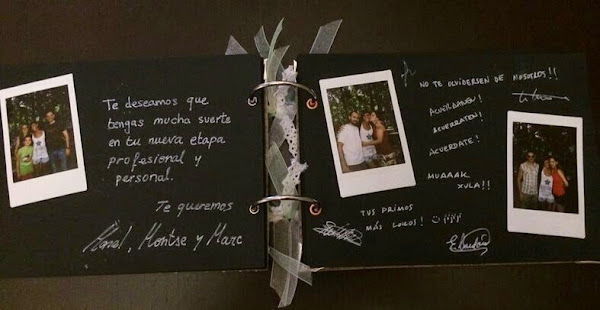 Te deseamos que
tengas mucha suerte
en tu nueva etapa
profesional y
personal.
Te queremos
Montse y Marc
NO TE OLVIDERSEN DE NOSOTROS!!
ACUÉRDANEN!
ACUERRATEN!
ACUERDATE!
MUAAAK
XULA!!
TUS PRIMOS
MÁS LOKOS!